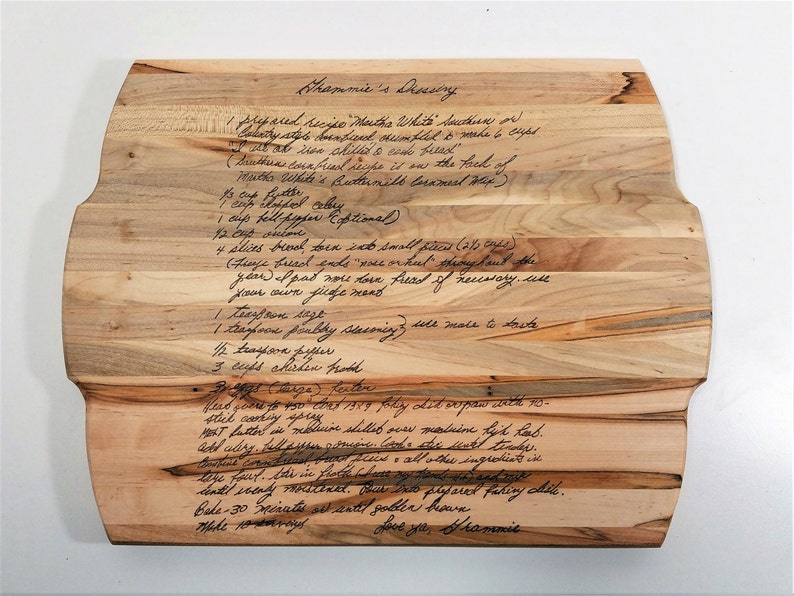 Grammie's Dressing
1 prepared recipe "Martha White" Southern or
Country style cornbread, crumpled to make 6 cups
"I use an iron skillet to cook bread"
(Southern cornbread recipe is on the back of
Martha White's Buttermilk Cornmeal Mix)
1/3 cup butter
1 cup chopped celery
1 cup bell-pepper (optional)
1/2 cup onion
4 slices bread, torn into small pieces (2 1/2 cups)
(freeze bread ends "nose or heel" throughout the
year) I put more torn bread if necessary, use
your own judgement
1 teaspoon sage
1 teaspoon poultry seasoning } use more to taste
1/2 teaspoon pepper
3 cups chicken broth
eggs (large) beaten
Heat oven to 450° Coat 13x9 baking dish or pan with no-
stick cooking spray
Melt butter in medium skillet over medium high heat.
Add celery, bell pepper & onion. Cook & stir until tender.
Combine cornbread, bread pieces & all other ingredients in
large bowl. Stir in broth (I use my hands to) and mix
until evenly moistened. Pour into prepared baking dish.
Bake 30 minutes or until golden brown
Make 10 servings Love ya, Grammie